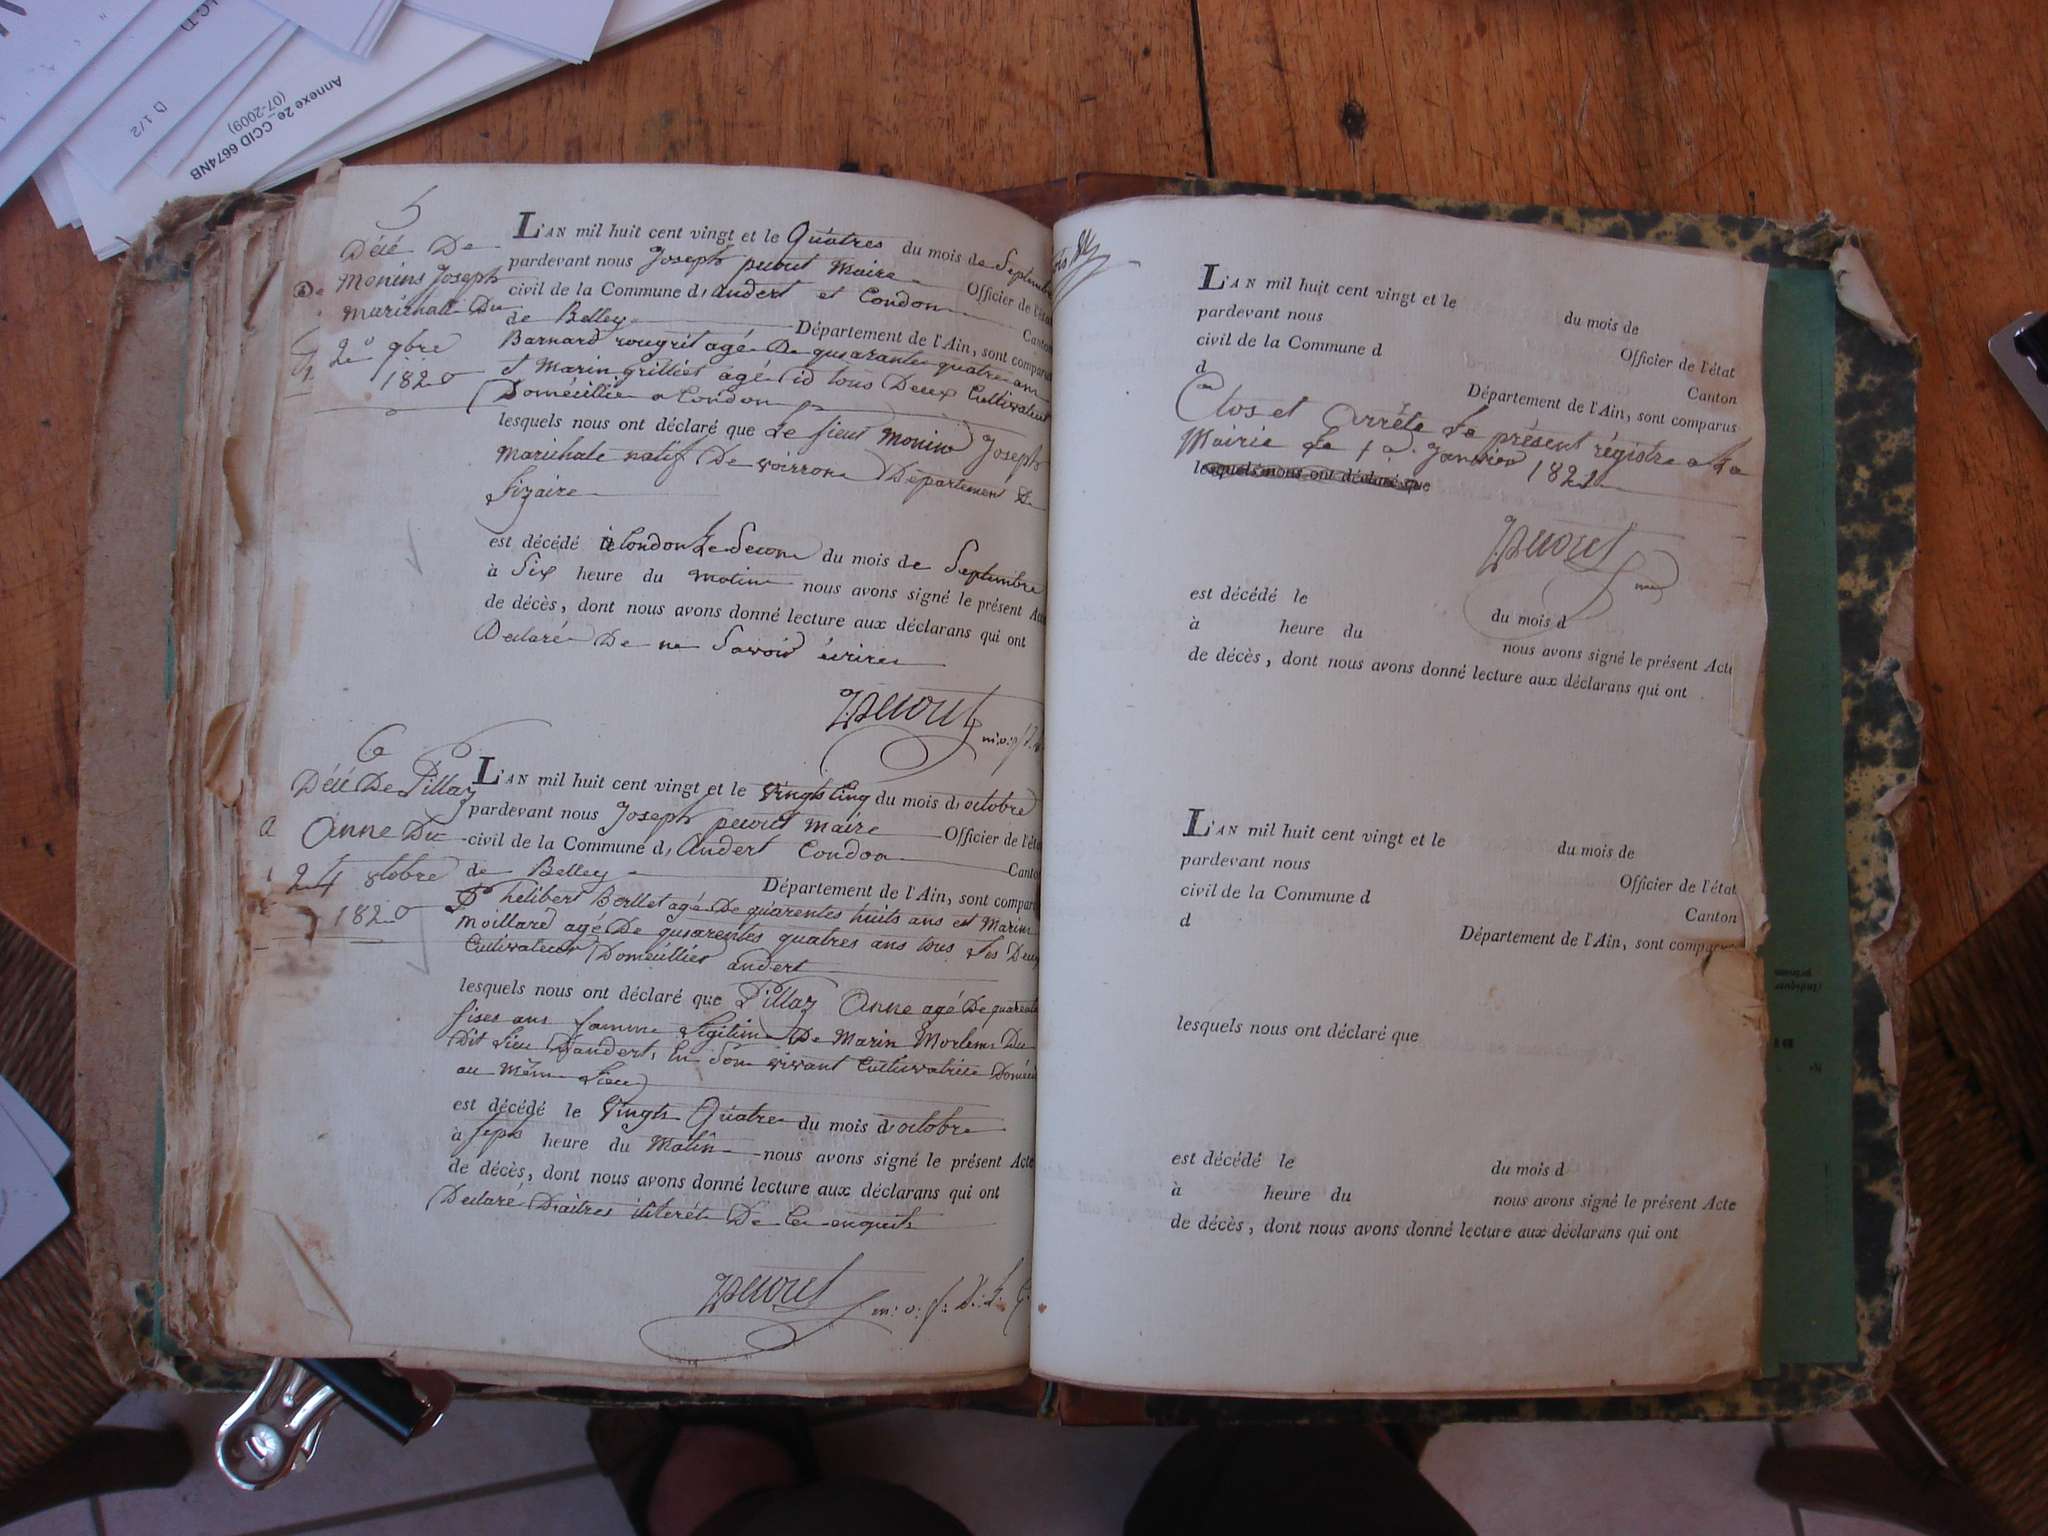 Annexe 2e_CCID 6674NB
(07-2009)
1/2
5
Décé De
Monins Joseph
Marichall Du
2 9bre
1820
L'AN mil huit cent vingt et le Quâtres du mois de Septembre
pardevant nous Joseph peuout Maire Officier de l'état
civil de la Commune d'andert et Condon Canton
de Belley Département de l'Ain, sont comparus
Barnard rougrit agé De quarante quatre an
et Marin grillies agé id tous Deux Cultivateur
Doméillie a Condon
lesquels nous ont déclaré que Le sieur Monins Joseph
Marichale natif De voirron Département De
Lizaire
est décédé à Condon Le Secon du mois de Septembre
à Six heure du Matin nous avons signé le présent Acte
de décès, dont nous avons donné lecture aux déclarans qui ont
Declaré De ne Savoir écrire
6
Décé De Pillaz
Anne Du
24 8tobre
1820
L'AN mil huit cent vingt et le Vingts Cinq du mois d'octobre
pardevant nous Joseph peuout Maire Officier de l'état
civil de la Commune d'Andert Condon
de Belley Canton
Département de l'Ain, sont comparus
Philibert Berllet agé De quarentes huits ans et Marin
Moillard agé De quarentes quatres ans tous Les Deux
Cultivateur Doméillies andert
lesquels nous ont déclaré que Pillaz Anne agé De quarente
sises ans famme Légitime De Marin Morlens Du
Dit Lieu D'andert, En Son vivant Cultivatrice
au Même Lieu
est décédé le Vingts Quatre du mois d'octobre
à septs heure du Matin nous avons signé le présent Acte
de décès, dont nous avons donné lecture aux déclarans qui ont
Declaré D'aitres iliterét De Ce enquits
L'AN mil huit cent vingt et le du mois de
pardevant nous Officier de l'état
civil de la Commune d Canton
d Département de l'Ain, sont comparus
Clos et Arrête Le présent régistre a La
Mairie Le 1er Janvier 1821
lesquels nous ont déclaré que
est décédé le du mois d
à heure du nous avons signé le présent Acte
de décès, dont nous avons donné lecture aux déclarans qui ont
L'AN mil huit cent vingt et le du mois de
pardevant nous Officier de l'état
civil de la Commune d Canton
d Département de l'Ain, sont comparus
lesquels nous ont déclaré que
est décédé le du mois d
à heure du nous avons signé le présent Acte
de décès, dont nous avons donné lecture aux déclarans qui ont